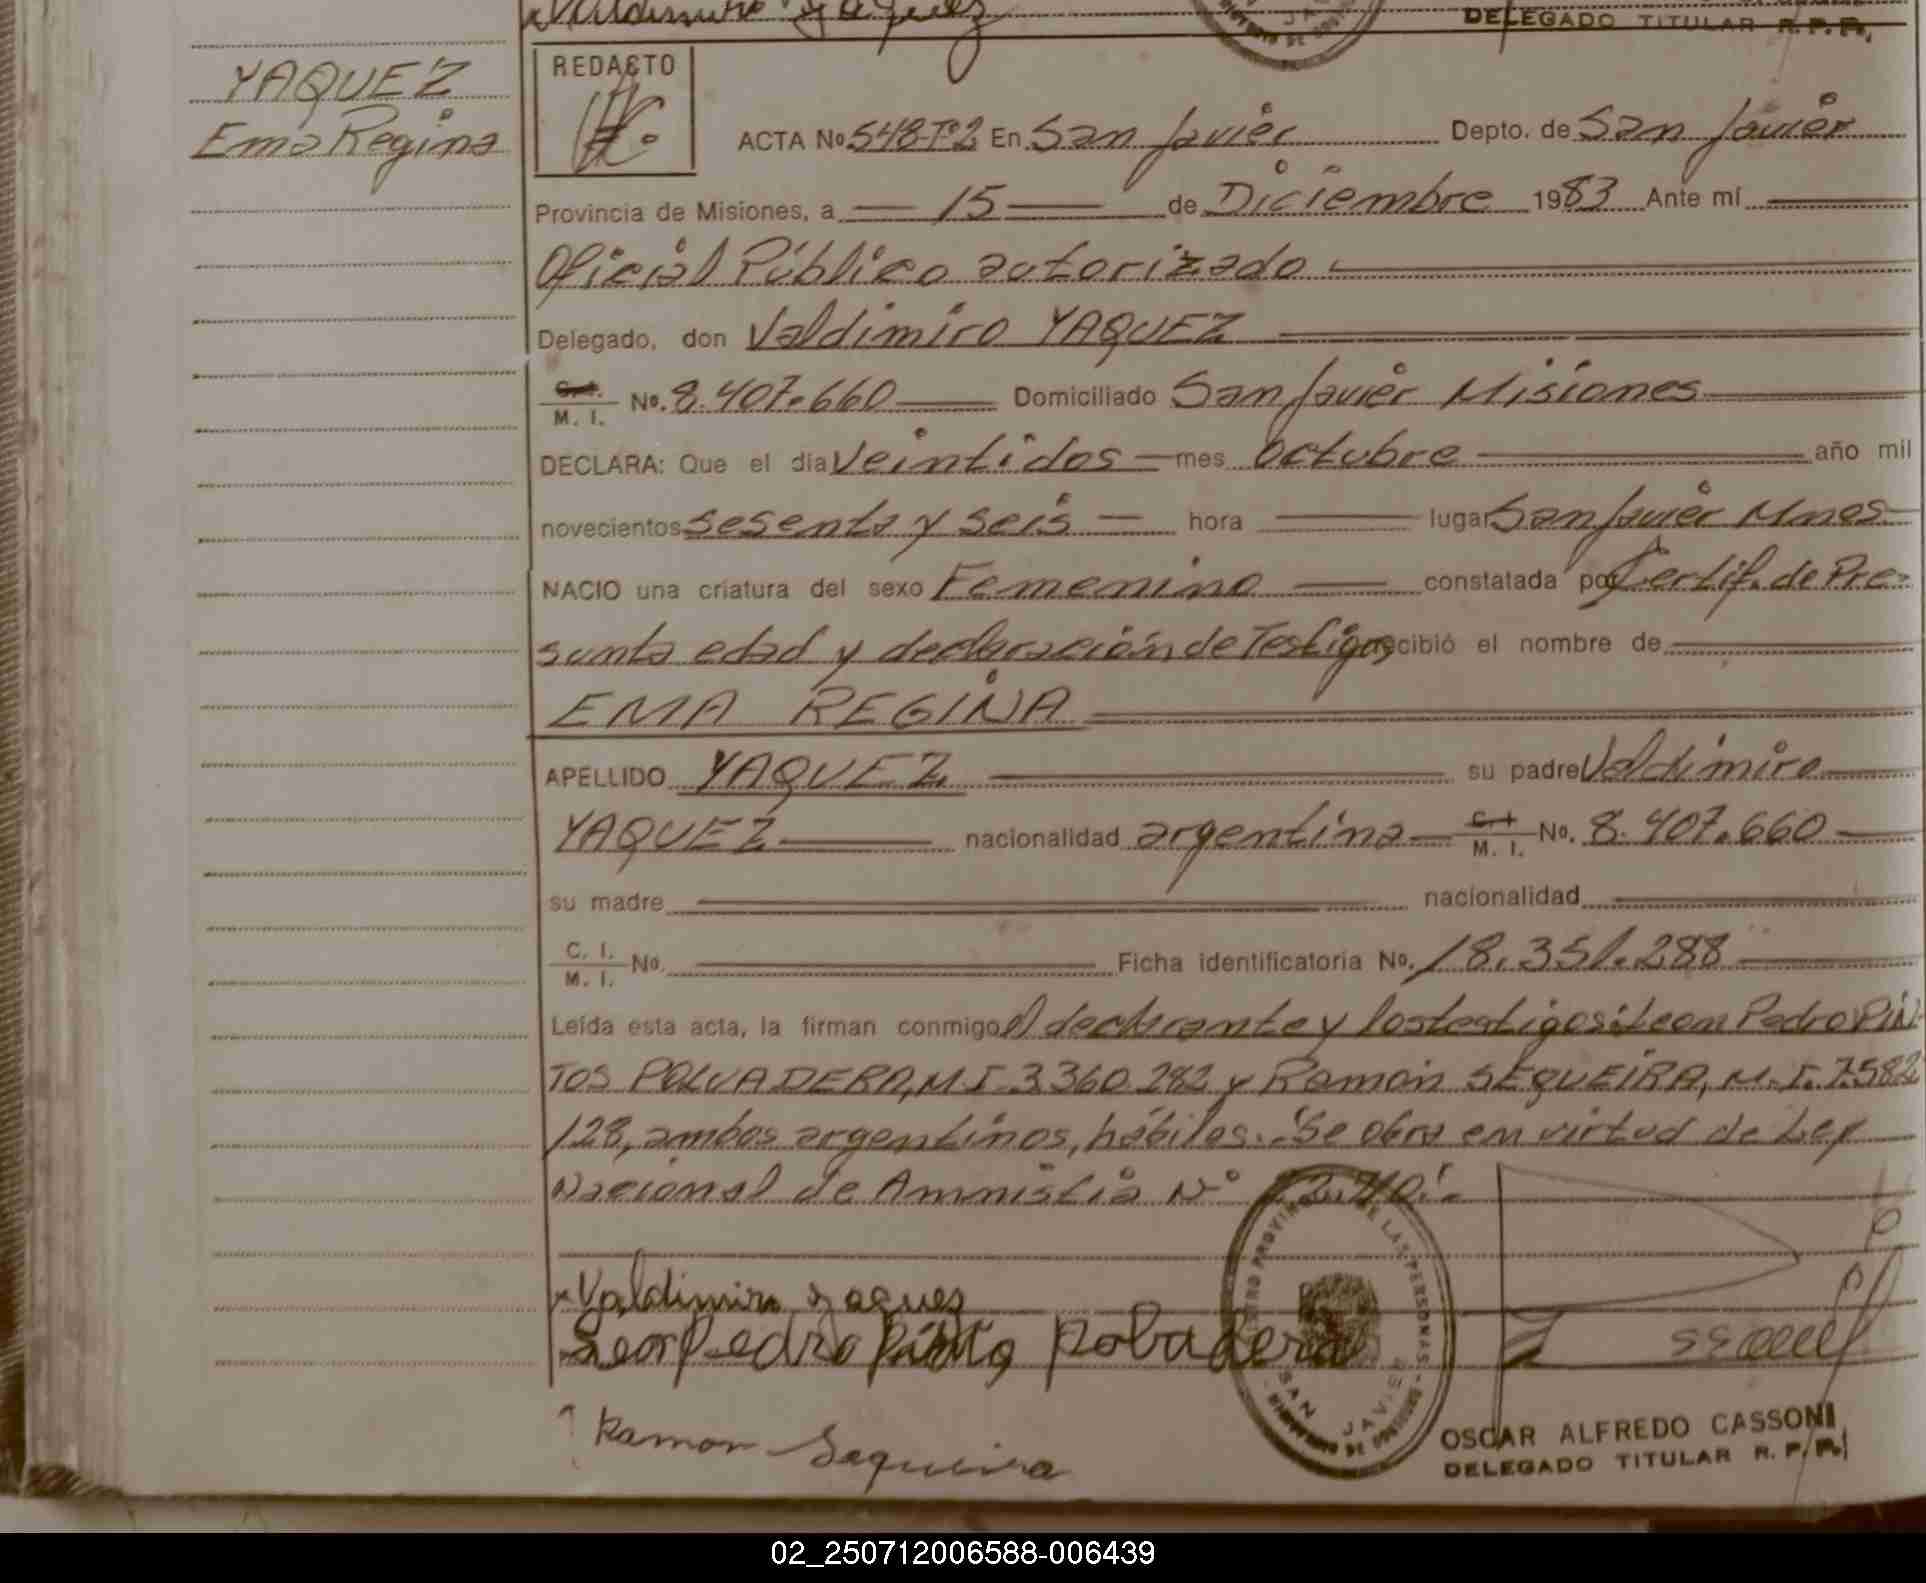 Valdimiro Yaquez
DELEGADO TITULAR R. P. P.
YAQUEZ
Ema Regina
REDACTO
ACTA No. 548-Tº2 En San Javier Depto. de San Javier
Provincia de Misiones, a 15 de Diciembre 1983 Ante mí
Oficial Público autorizado
Delegado, don Valdimiro YAQUEZ
C. I. M. I. No. 8.407.660 Domiciliado San Javier Misiones
DECLARA: Que el día Veintidos mes Octubre año mil
novecientos sesenta y seis hora lugar San Javier Mnes
NACIO una criatura del sexo Femenino constatada por Certif. de Pre-
sunta edad y declaración de Testigos recibió el nombre de
EMA REGINA
APELLIDO YAQUEZ su padre Valdimiro
YAQUEZ nacionalidad argentina C. I. M. I. No. 8.407.660
su madre nacionalidad
C. I. M. I. No. Ficha identificatoria No. 18.351.288
Leída esta acta, la firman conmigo el declarante y los testigos: Leon Pedro PIN-
TOS POLVADERA, M.I. 3.360.282 y Ramón SEQUEIRA, M.I. 7.582.
128, ambos argentinos, hábiles. Se obra en virtud de Ley
Nacional de Amnistía Nº
Valdimiro Yaquez
Leon Pedro Pinto Pobadera
Ramon Sequeira
SAN JAVIER
OSCAR ALFREDO CASSONI
DELEGADO TITULAR R. P. P.
02_250712006588-006439